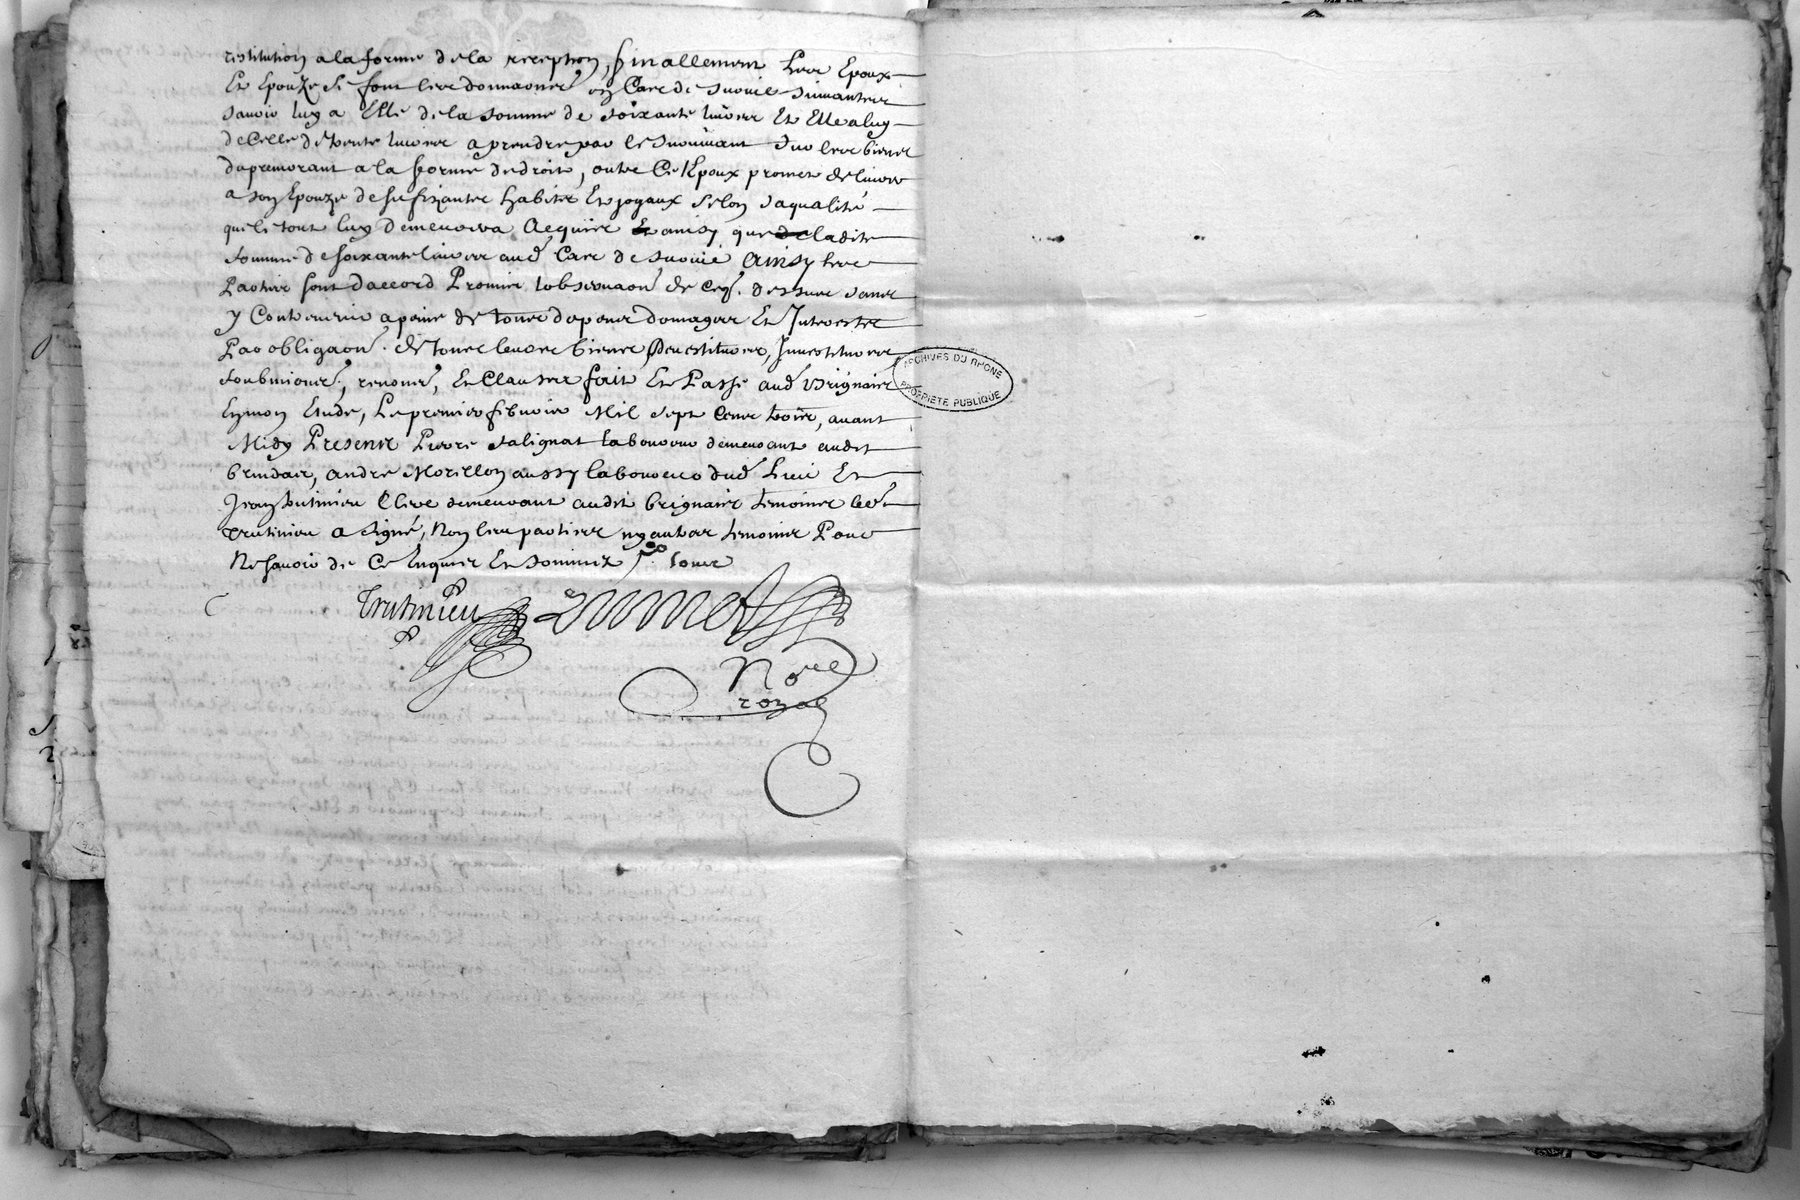 restitution a la forme de la reception, finallement lesd Epoux
Et Epouze se font les donnaons en Cas de survie suivantes
savoir luy a Elle de la somme de soixante livres Et Elle a luy
de Celle de trente livres a prendre par le survivant sur les biens
du premorant a la forme de droit, outre Ce l'Epoux promet de livrer
a son Epouze de sufizantes habits Et joyaux selon sa qualité
que le tout luy demeurera Acquier Et ainsy que de ladite
somme de soixante livres aud Cas de survie Ainsy les
Parties sont d'accord Promis l'observaon de Ceq. dessus sans
y Contrevenir a peine de tous depens domages Et Interestes
Par obligaon de tous leurs biens, Devestitures, Investitures
soubmions, renons, Et Clauses fait Et Passé aud Brignais
Eymon Etude, Le premier febvrier Mil sept Cens trois, avant
Midy Presens Pierre Salignat laboureur demeurant audit
brindas, andré Morillon aussy laboureur dud Lieu Et
Jean trutinieu Clerc demeurant audit brignais temoins led
trutinieu a signé, Non les parties ny autres temoins Pour
Ne savoir de Ce Enquis Et sommez s. tous
Trutinieu
Nore
royal
ARCHIVES DU RHONE
PROPRIETE PUBLIQUE